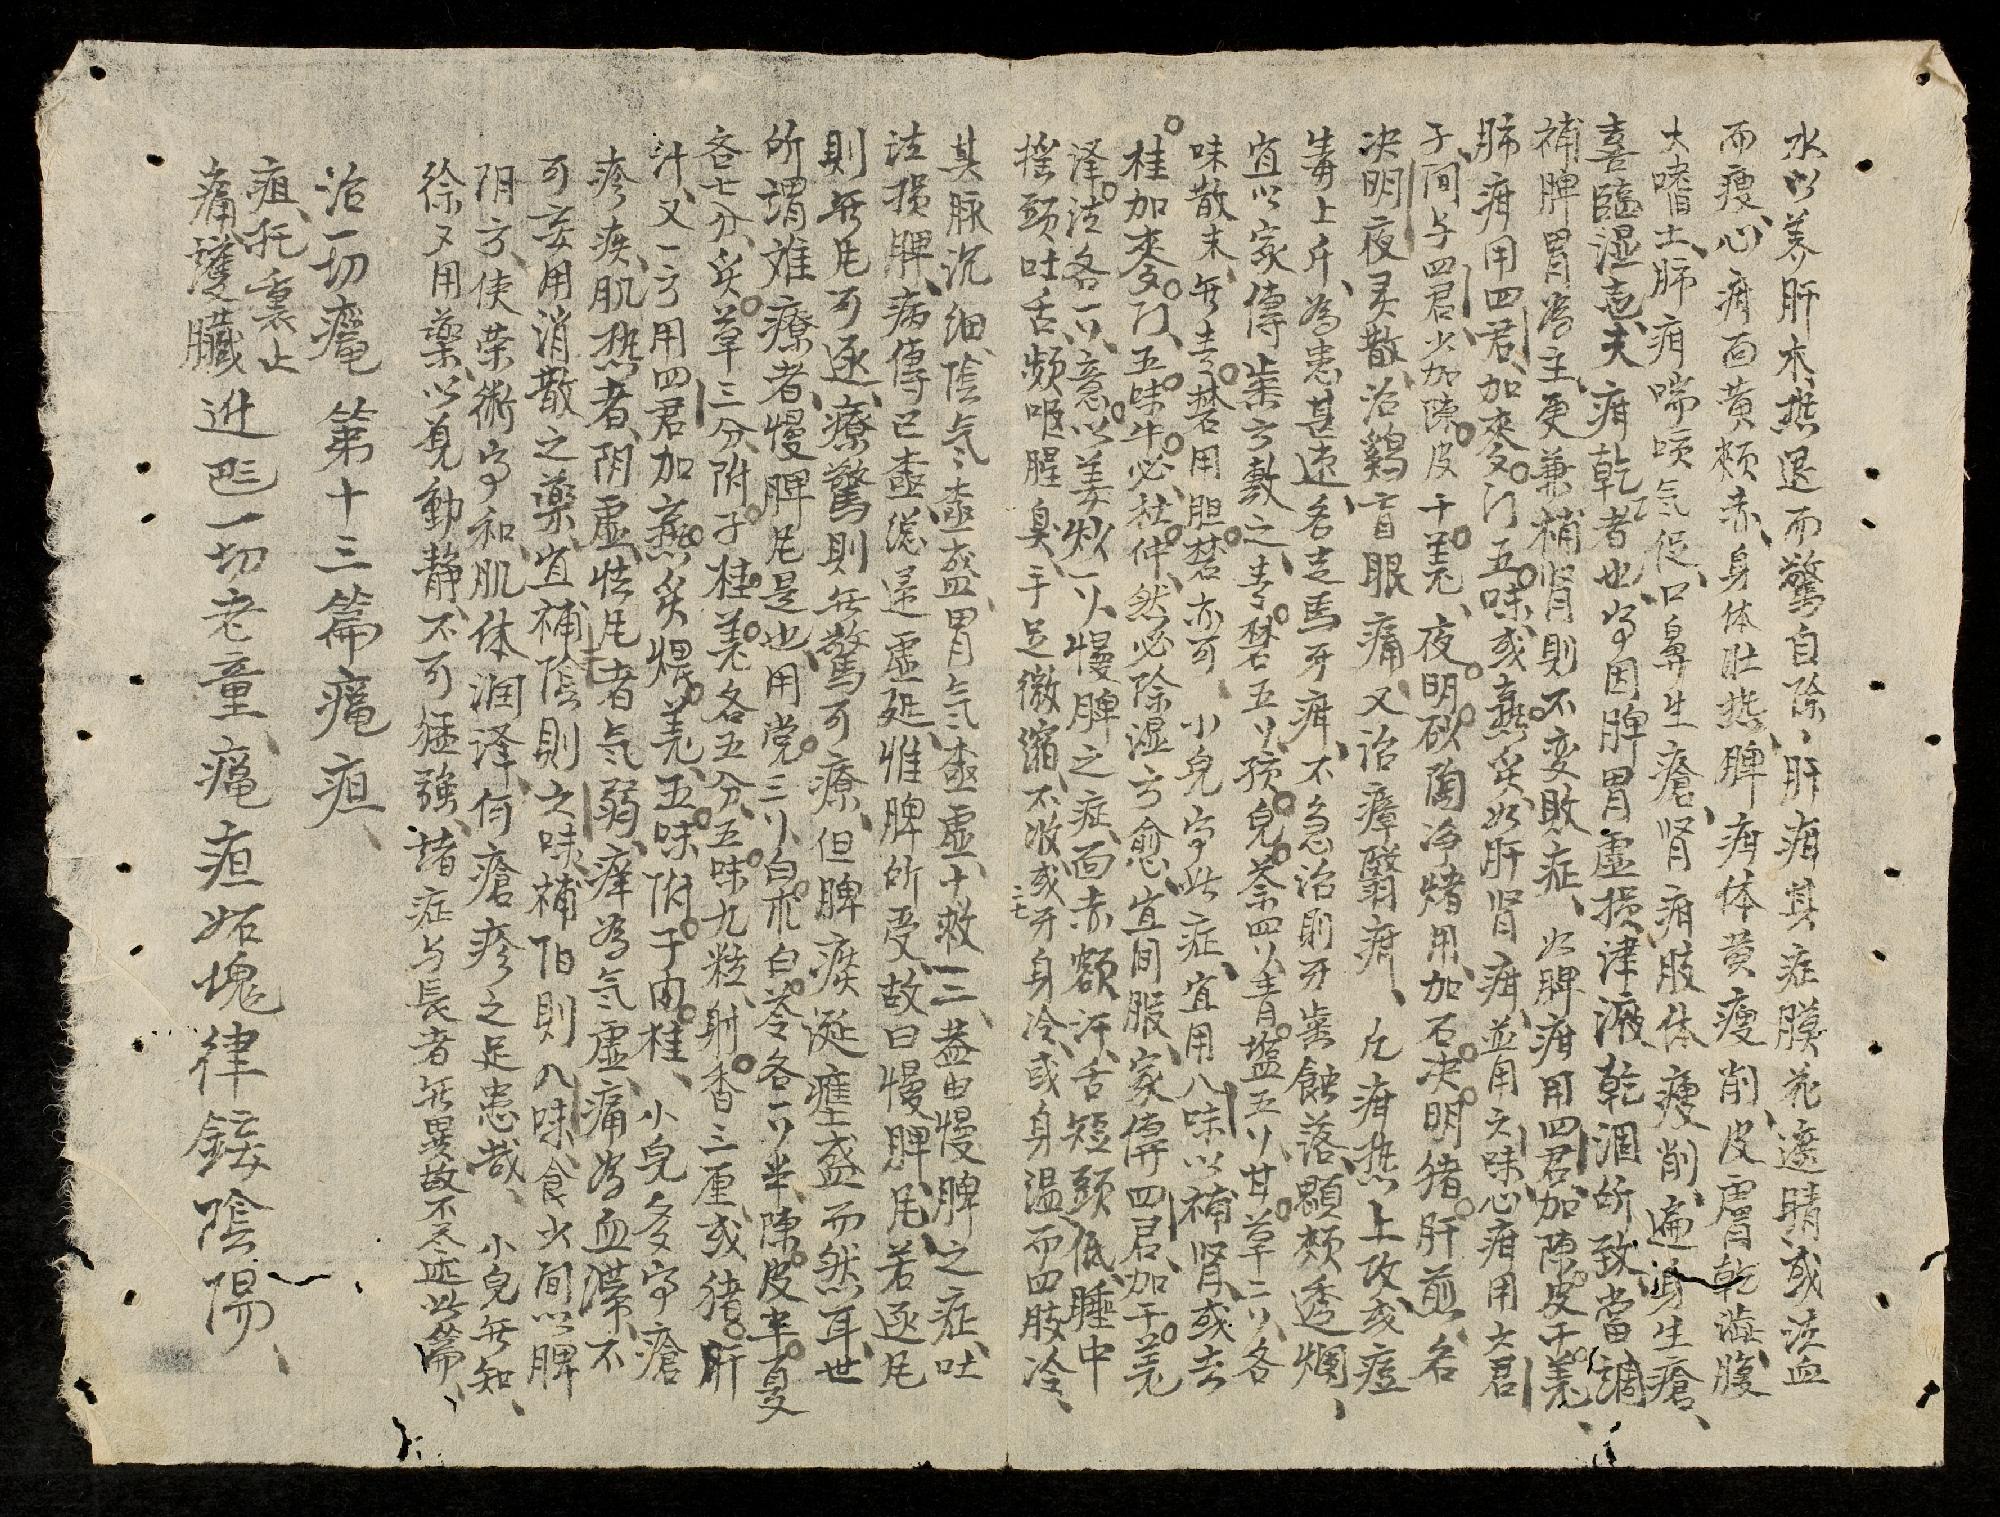 水以养肝木热退而驚自除肝疳其症膜𬞟遮睛或法血
而瘦心疳面黄頰赤身体壮热脾疳体黄瘦削皮膚乾澁腹
大嗜土肺疳喘咳气促口鼻生瘡肾疳肢体瘦削遍身生瘡
喜臨湿 夫疳乾者也 因脾胃虚损津液乾涸所致當調
補脾胃為主更兼補肾則不变敗症如脾疳用四君加陳皮干羌
肺疳用四君加麥门五味或 炙如肝肾疳並用六味心疳用六君
子间与四君少加陳皮干羌夜明砂陶净 用加石决明猪肝煎名
决明夜灵散治鷄盲眼痛又治瘴翳疳凡疳热上攻或痘
毒上斤為患甚速名走馬牙疳不急治則牙齒蝕落顋頰透爛
宜以家傳 方敷之青礬五 孩児茶四 青塩五 甘草二 各
味散末無青礬用胆礬亦可 小兒 此症宜用八味以補肾或去
桂加麥门五味牛必杜仲然必除湿方愈宜间服家傳四君加干羌
泽法各一 意以姜炒一 慢脾之症面赤額汗舌短頭低睡中
摇頭吐舌頻呕腥臭手足微縮不收或牙身冷或身温而四肢冷
其脉沉细陰气 盛胃气 虚十救一二盖由慢脾之症吐
法损脾病傳已 虚延惟脾所受故曰慢脾凡若逐凡
則無凡可逐療驚則無驚可療但脾痰涎壅盛而然耳世
所谓难療者慢脾凡是也用党三 白朮白苓各一 半陳皮半夏
各七分炙草三分附子桂羌各五分五味九粒射香三厘或猪肝
汁又一方用四君加 炙煨羌五味附子肉桂 小兒多 瘡
疹疾肌热者阴虚怯凡者气弱痒為气虚痛為血滞不
可妄用消散之藥宜補陰則之味補阳則八味食少间以脾
阴方使荣術 和肌体润泽何瘡疹之足患哉 小兒無知
徐又用藥以見動静不可猛強諸症与長者無異故不尽 此篇
治一切癰第十三篇癰疽
疽托裏止
痛護臟进 一切老童癰疸妬塊律錂陰陽